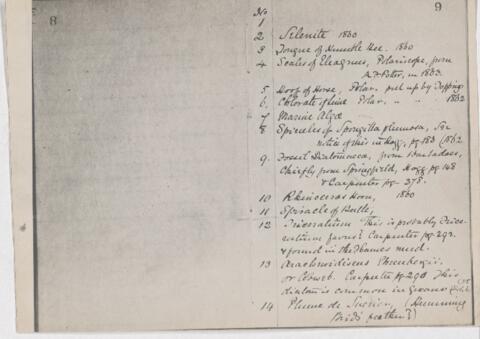 8
9
No
1
2 Selenite 1860
3 Tongue of Humble Bee. 1860
4 Scales of Eleagnus, Polariscope, from
in 1863.
5 Hoof of Horse, Polar. put up by Topping
6 Chlorate of Lime Polar. " " 1862
7 Marine Algæ
8 Spicules of Spongilla plumosa, See
notice of this in Hogg, pg 183 (1862
9. Fossil Diatomacea, from Barbadoes,
Chiefly from Springfield, Hogg pg 148
& Carpenter pg. 278.
10 Rhinoceros Horn, 1860
11 Spiracle of Beetle,
12 Triceratium This is probably Trice-
ratium favus? Carpenter pg. 292.
& found in the Thames mud.
13 Arachnoidiscus Ehrenbergii.
or Cobweb. Carpenter pg 290 This
diatom is common in Guano
14 Plume de Sucrier, (Humming
Birds feather?)